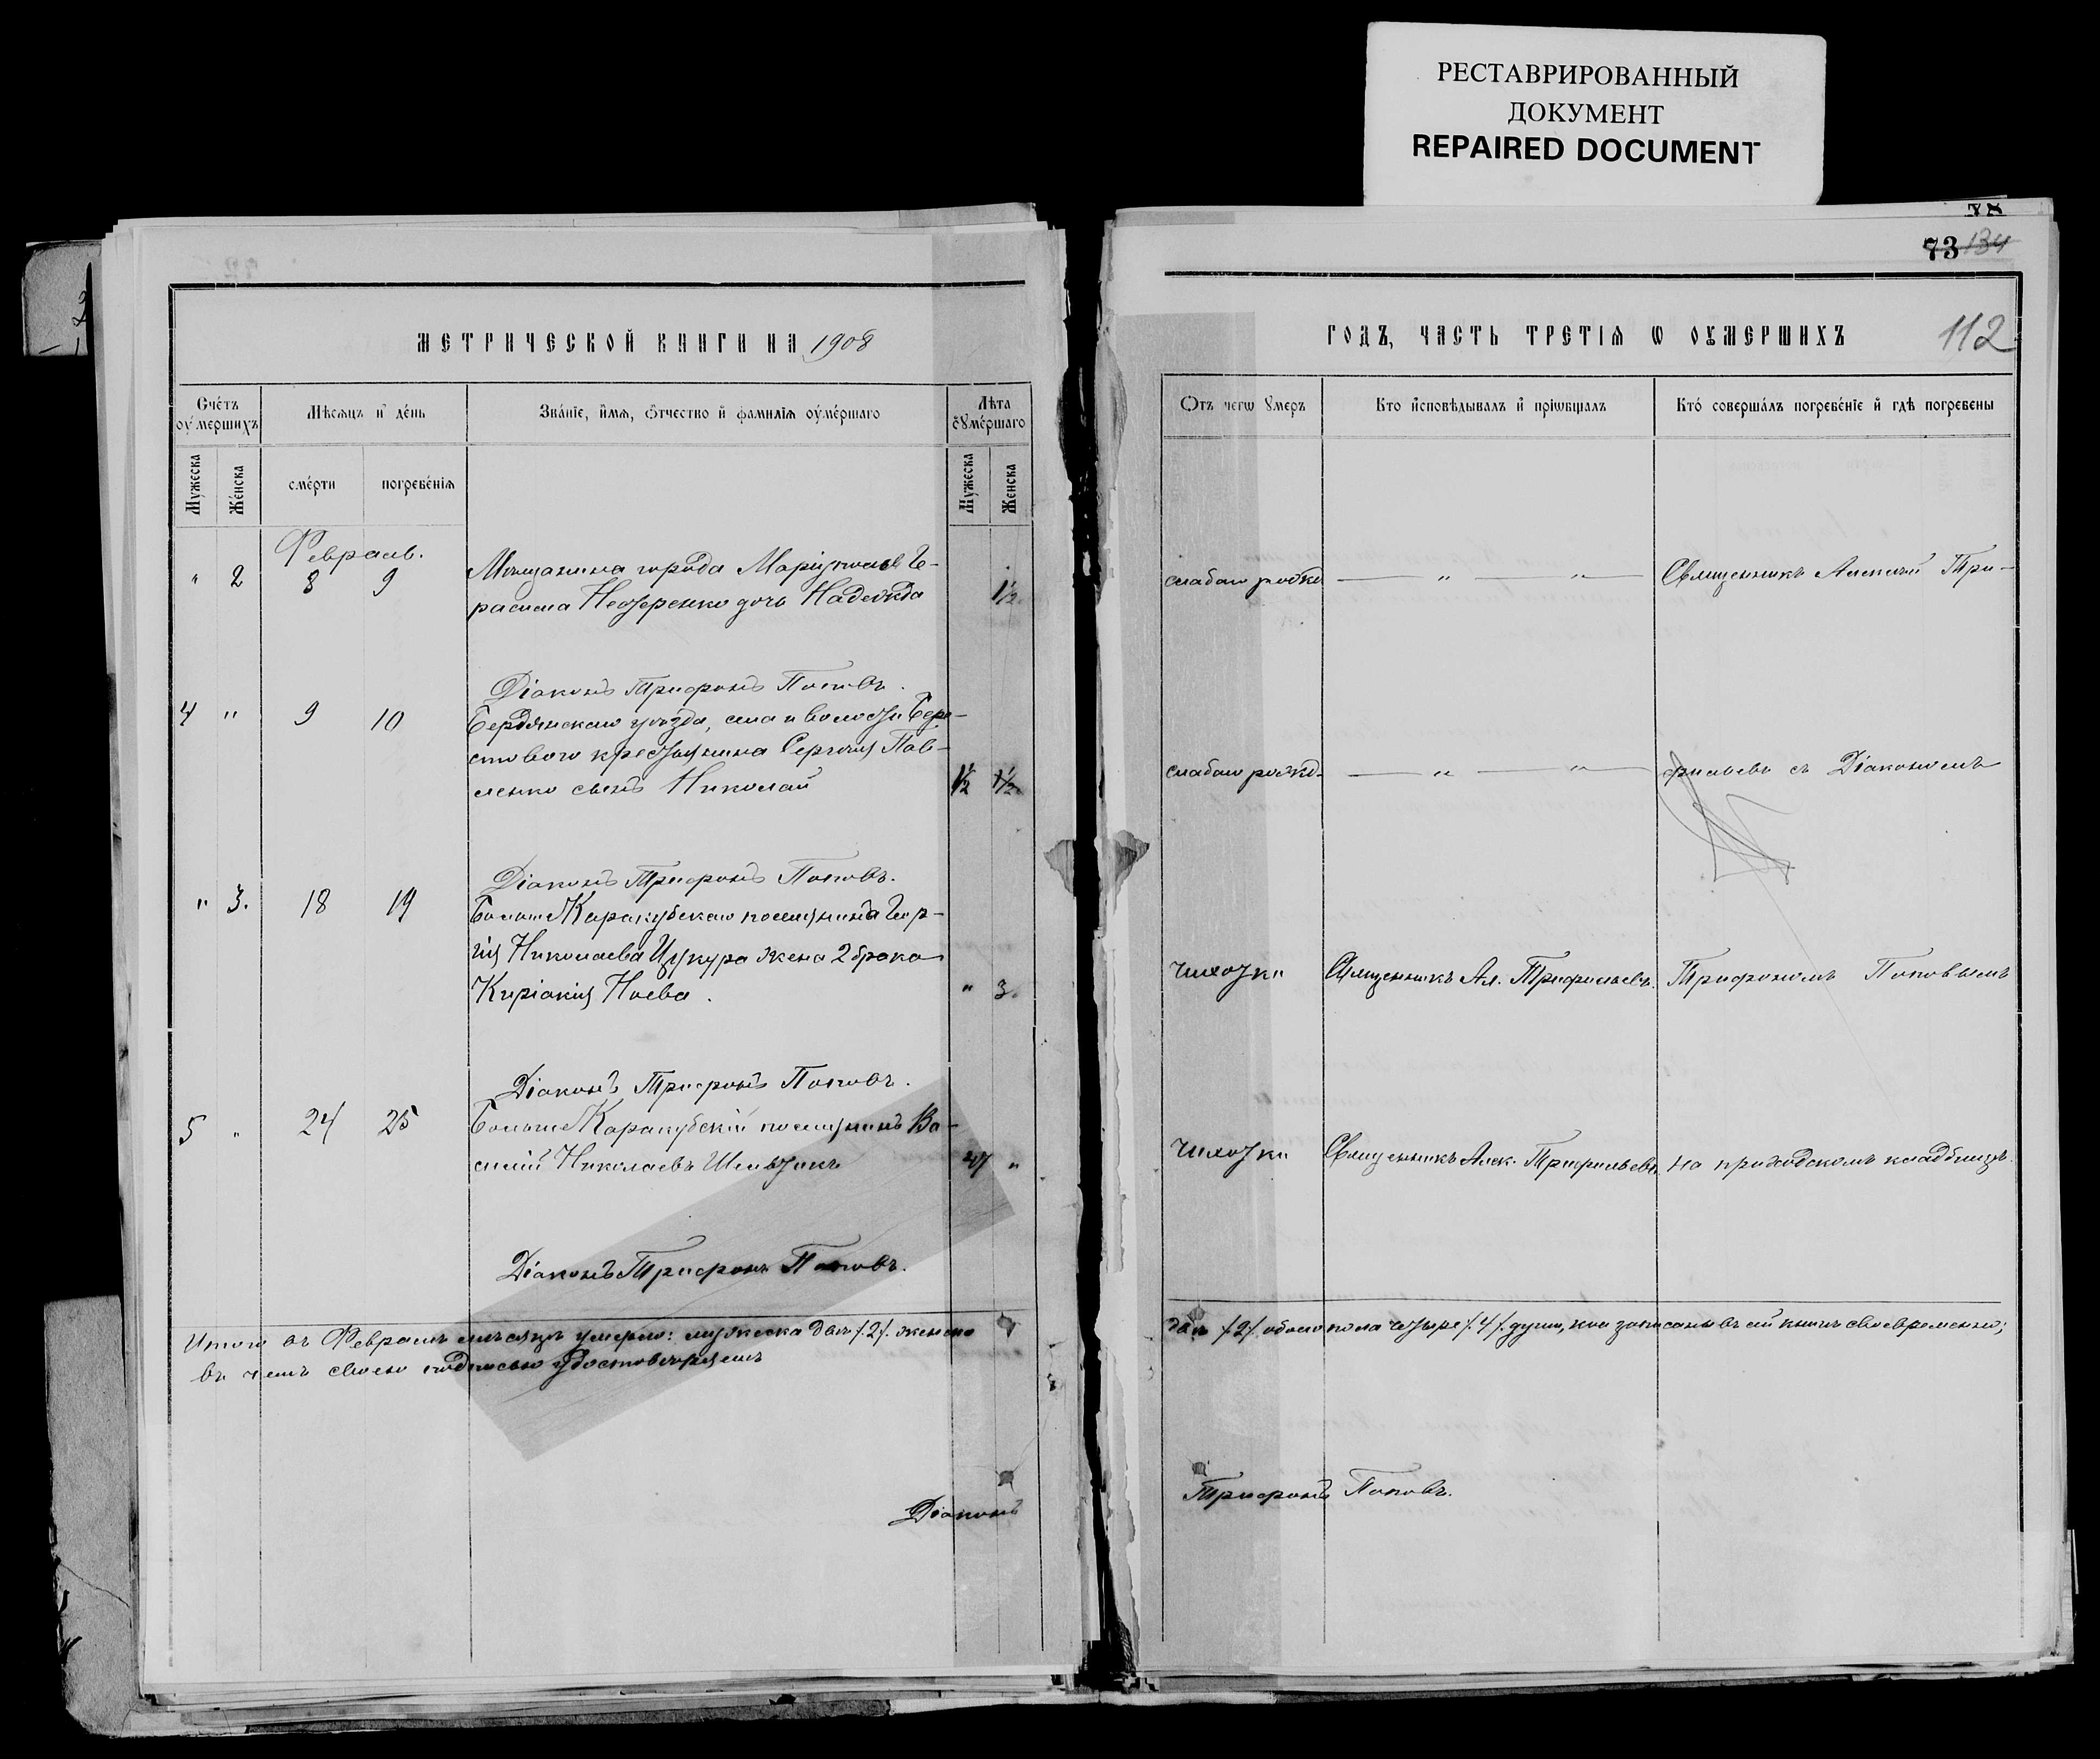 РЕСТАВРИРОВАННЫЙ
ДОКУМЕНТ
REPAIRED DOCUMENT
МЕТРИЧЕСКОЙ КНИГИ НА 1908
Счетъ оумершихъ
Мѣсяцъ и день
Званіе, имя, отчество и фамилія оумершаго
Лѣта оумершаго
Мужеска
Женска
смерти
погребенія
Мужеска
Женска
Февраль.
" 2 8 9 Мѣщанина города Маріуполя Ге-
расима Нестеренко дочь Надежда 1½
Діаконъ Трифонъ Поповъ.
4 " 9 10 Бердянскаго уѣзда, села и волости Бере-
стового крестьянина Сергія Пав-
ленко сынъ Николай 1½ 1½
Діаконъ Трифонъ Поповъ.
" 3. 18 19 Больше Каракубскаго поселянина Геор-
гія Николаева Цукура жена 2 брака
Киріакія Ноева. " 3.
Діаконъ Трифонъ Поповъ.
5 " 24 25 Больше Каракубскій поселянинъ Ва-
силій Николаевъ 47 "
Діаконъ Трифонъ Поповъ.
Итого въ Февралѣ мѣсяцѣ умерло: мужеска два /2/. женска
въ чемъ своею подписью удостовѣряемъ
Діаконъ
78
73 134
ГОДЪ, ЧАСТЬ ТРЕТІЯ Ѡ ОУМЕРШИХЪ 112
Отъ чегѡ умеръ
Кто исповѣдывалъ и пріѡбщалъ
Кто совершалъ погребеніе и гдѣ погребены
слабаго рожд. " " Священникъ Алексій Три-
слабаго рожд. " " фильевъ съ Діакономъ
чахотки Священникъ Ал. Трифильевъ. Трифономъ Поповымъ
чахотки Священникъ Алек. Трифильевъ. на приходскомъ кладбищѣ.
двѣ /2/. обоего пола четыре /4/. души, кои записаны въ сій книгѣ своевременно;
Трифонъ Поповъ.